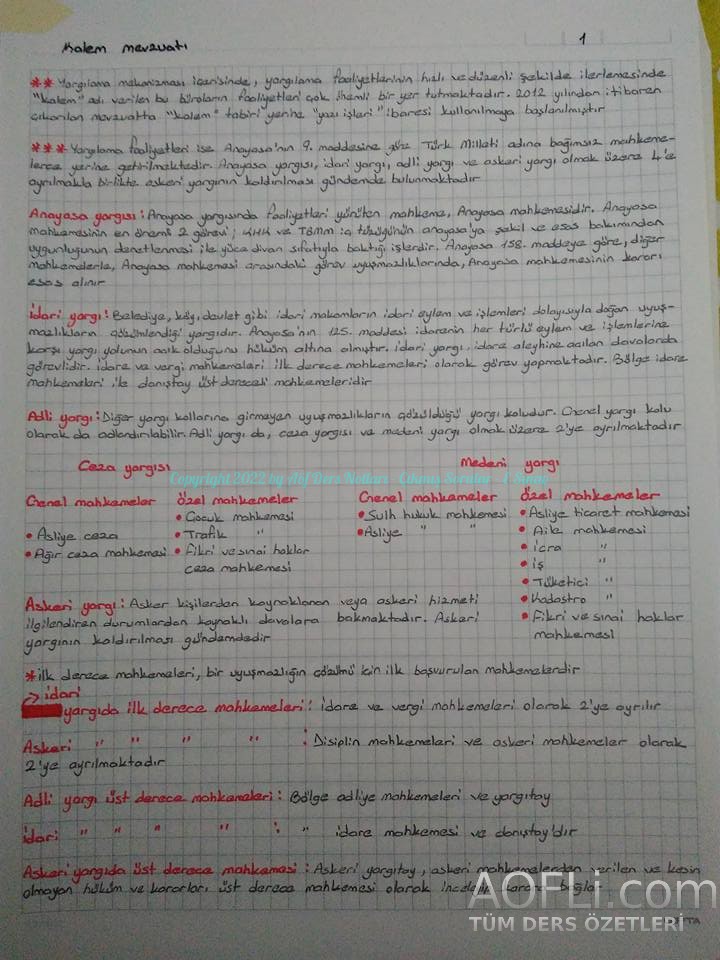 Kalem mevzuatı
1
** Yargılama mekanizması içerisinde, yargılama faaliyetlerinin hızlı ve düzenli şekilde ilerlemesinde
"kalem" adı verilen bu büroların faaliyetleri çok önemli bir yer tutmaktadır. 2012 yılından itibaren
çıkarılan mevzuatta "kalem" tabiri yerine "yazı işleri" ibaresi kullanılmaya başlanılmıştır
*** Yargılama faaliyetleri ise Anayasa'nın 9. maddesine göre Türk Milleti adına bağımsız mahkeme-
lerce yerine getirilmektedir. Anayasa yargısı, idari yargı, adli yargı ve askeri yargı olmak üzere 4'e
ayrılmakla birlikte askeri yargının kaldırılması gündemde bulunmaktadır
Anayasa yargısı: Anayasa yargısında faaliyetleri yürüten mahkeme, Anayasa mahkemesidir. Anayasa
mahkemesinin en önemli 2 görevi; KHK ve TBMM iç tüzüğünün anayasa'ya şekil ve esas bakımından
uygunluğunun denetlenmesi ile yüce divan sıfatıyla baktığı işlerdir. Anayasa 158. maddeye göre, diğer
mahkemelerle, Anayasa mahkemesi arasındaki görev uyuşmazlıklarında, Anayasa mahkemesinin kararı
esas alınır
İdari yargı: Belediye, köy, devlet gibi idari makamların idari eylem ve işlemleri dolayısıyla doğan uyuş-
mazlıkların çözümlendiği yargıdır. Anayasa'nın 125. maddesi idarenin her türlü eylem ve işlemlerine
karşı yargı yolunun açık olduğunu hüküm altına almıştır. İdari yargı, idare aleyhine açılan davalarda
görevlidir. İdare ve vergi mahkemeleri ilk derece mahkemeleri olarak görev yapmaktadır. Bölge idare
mahkemeleri ile danıştay üst dereceli mahkemeleridir
Adli yargı: Diğer yargı kollarına girmeyen uyuşmazlıkların çözüldüğü yargı koludur. Genel yargı kolu
olarak da adlandırılabilir. Adli yargı da, ceza yargısı ve medeni yargı olmak üzere 2'ye ayrılmaktadır
Ceza yargısı Medeni yargı
Copyright 2022 by Aöf Ders Notları - Çıkmış Sorular
Genel mahkemeler Özel mahkemeler Genel mahkemeler Özel mahkemeler
• Çocuk mahkemesi • Sulh hukuk mahkemesi • Asliye ticaret mahkemesi
• Asliye ceza • Trafik " • Asliye " " • Aile mahkemesi
• Ağır ceza mahkemesi • Fikri ve sınai haklar • İcra "
ceza mahkemesi • İş "
• Tüketici "
Askeri yargı: Asker kişilerden kaynaklanan veya askeri hizmeti • Kadastro "
ilgilendiren durumlardan kaynaklı davalara bakmaktadır. Askeri • Fikri ve sınai haklar
yargının kaldırılması gündemdedir mahkemesi
* İlk derece mahkemeleri, bir uyuşmazlığın çözümü için ilk başvurulan mahkemelerdir
→ idari
yargıda ilk derece mahkemeleri: İdare ve vergi mahkemeleri olarak 2'ye ayrılır
Askeri " " " " : Disiplin mahkemeleri ve askeri mahkemeler olarak
2'ye ayrılmaktadır
Adli yargı üst derece mahkemeleri: Bölge adliye mahkemeleri ve yargıtay
İdari " " " " : " idare mahkemesi ve danıştay'dır
Askeri yargıda üst derece mahkemesi: Askeri yargıtay, askeri mahkemelerden verilen ve kesin
olmayan hüküm ve kararları üst derece mahkemesi olarak inceleyip karara bağlar
AOFLi.com
TÜM DERS ÖZETLERİ